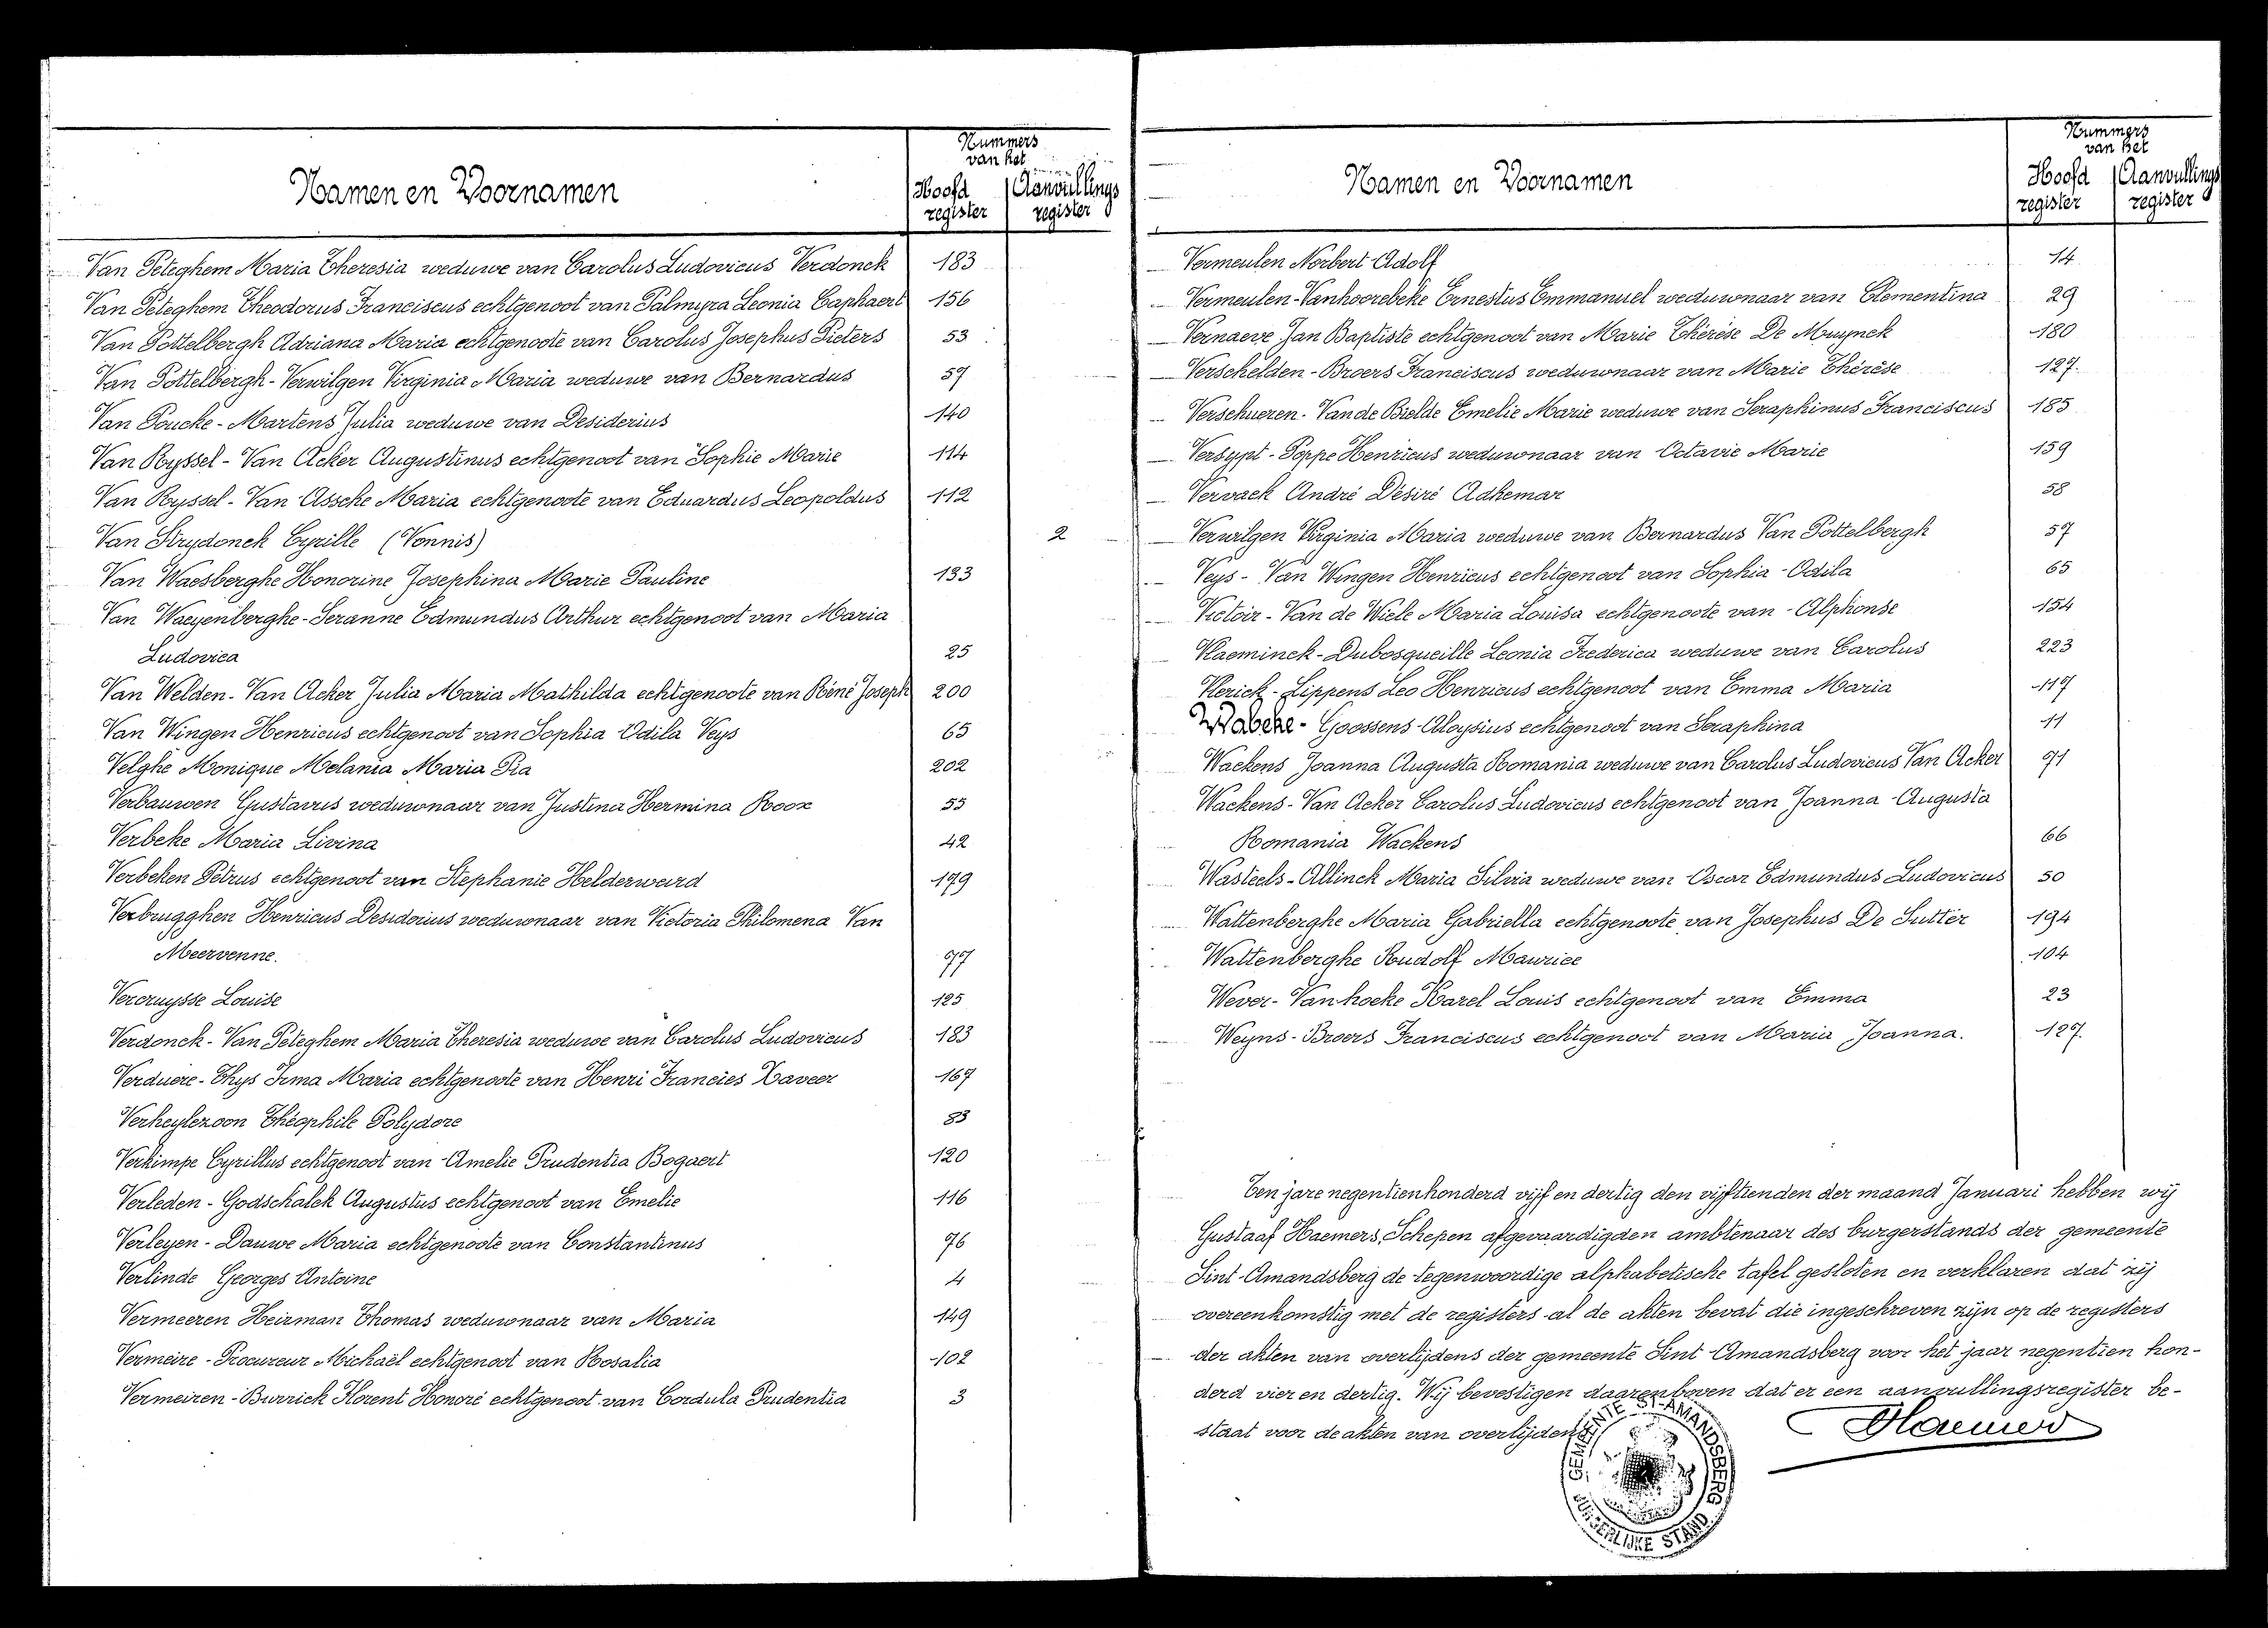 Nummers
van het
Namen en Voornamen
Hoofd
register
Aanvullings
register
Van Peteghem Maria Theresia weduwe van Carolus Ludovicus Verdonck 183
Van Peteghem Theodorus Franciscus echtgenoot van Palmyra Leonia Caphaert 156
Van Pottelbergh Adriana Maria echtgenoote van Carolus Josephus Pieters 53
Van Pottelbergh-Verwilgen Virginia Maria weduwe van Bernardus 57
Van Poucke-Martens Julia weduwe van Desiderius 140
Van Ryssel-Van Acker Augustinus echtgenoot van Sophie Marie 114
Van Ryssel-Van Assche Maria echtgenoote van Eduardus Leopoldus 112
Van Strydonck Cyrille (Vonnis) 2
Van Waesberghe Honorine Josephina Marie Pauline 133
Van Waeyenberghe-Seranne Edmundus Arthur echtgenoot van Maria
Ludovica 25
Van Welden-Van Acker Julia Maria Mathilda echtgenoote van Réné Joseph 200
Van Wingen Henricus echtgenoot van Sophia Odila Veys 65
Velghe Monique Melania Maria Pia 202
Verbauwen Gustavus weduwnaar van Justina Hermina Roox 55
Verbeke Maria Livina 42
Verbeken Petrus echtgenoot van Stephanie Helderweird 179
Verbrugghen Henricus Desiderius weduwnaar van Victoria Philomena Van
Meervenne. 77
Vercruysse Louise 125
Verdonck-Van Peteghem Maria Theresia weduwe van Carolus Ludovicus 183
Verduere-Thys Irma Maria echtgenoote van Henri Francies Xaveer 167
Verheylezoon Théophile Polydore 83
Verkimpe Cyrillus echtgenoot van Amelie Prudentia Bogaert 120
Verleden-Godschalck Augustus echtgenoot van Emelie 116
Verleyen-Dauwe Maria echtgenoote van Constantinus 76
Verlinde Georges Antoine 4
Vermeeren Heirman Thomas weduwnaar van Maria 149
Vermeire-Procureur Michaël echtgenoot van Rosalia 102
Vermeiren-Burrick Florent Honoré echtgenoot van Cordula Prudentia 3
Nummers
van het
Namen en Voornamen
Hoofd
register
Aanvullings
register
Vermeulen Norbert Adolf 14
Vermeulen-Vanhoorebeke Ernestus Emmanuel weduwnaar van Clementina 29
Vernaeve Jan Baptiste echtgenoot van Marie Thérèse De Muynck 180
Verschelden-Broers Franciscus weduwnaar van Marie Thérèse 127.
Verschueren-Van de Bielde Emelie Marie weduwe van Seraphinus Franciscus 185
Versypt-Poppe Henricus weduwnaar van Octavie Marie 159
Vervack André Désiré Adhemar 58
Verwilgen Virginia Maria weduwe van Bernardus Van Pottelbergh 57
Veys-Van Wingen Henricus echtgenoot van Sophia Odila 65
Victoir-Van de Wiele Maria Louisa echtgenoote van Alphonse 154
Vlaeminck-Dubosqueille Leonia Frederica weduwe van Carolus 223
Vlerick-Lippens Leo Henricus echtgenoot van Emma Maria 117
Wabeke-Goossens Aloysius echtgenoot van Seraphina 11
Wackens Joanna Augusta Romania weduwe van Carolus Ludovicus Van Acker 71
Wackens-Van Acker Carolus Ludovicus echtgenoot van Joanna Augusta
Romania Wackens 66
Wasteels-Allinck Maria Silvia weduwe van Oscar Edmundus Ludovicus 50
Wattenberghe Maria Gabriella echtgenoote van Josephus De Sutter 194
Wattenberghe Rudolf Maurice 104
Wever-Vanhoeke Karel Louis echtgenoot van Emma 23
Weyns-Broers Franciscus echtgenoot van Maria Joanna. 127.
Ten jare negentienhonderd vijf en dertig den vijftienden der maand Januari hebben wij
Gustaaf Haemers, Schepen afgevaardigden ambtenaar des burgerstands der gemeente
Sint-Amandsberg de tegenwoordige alphabetische tafel gesloten en verklaren dat zij
overeenkomstig met de registers al de akten bevat die ingeschreven zijn op de registers
der akten van overlijdens der gemeente Sint-Amandsberg voor het jaar negentien hon-
derd vier en dertig. Wij bevestigen daarenboven dat er een aanvullingsregister be-
staat voor de akten van overlijdens
Haemers
GEMEENTE ST-AMANDSBERG
BURGERLIJKE STAND